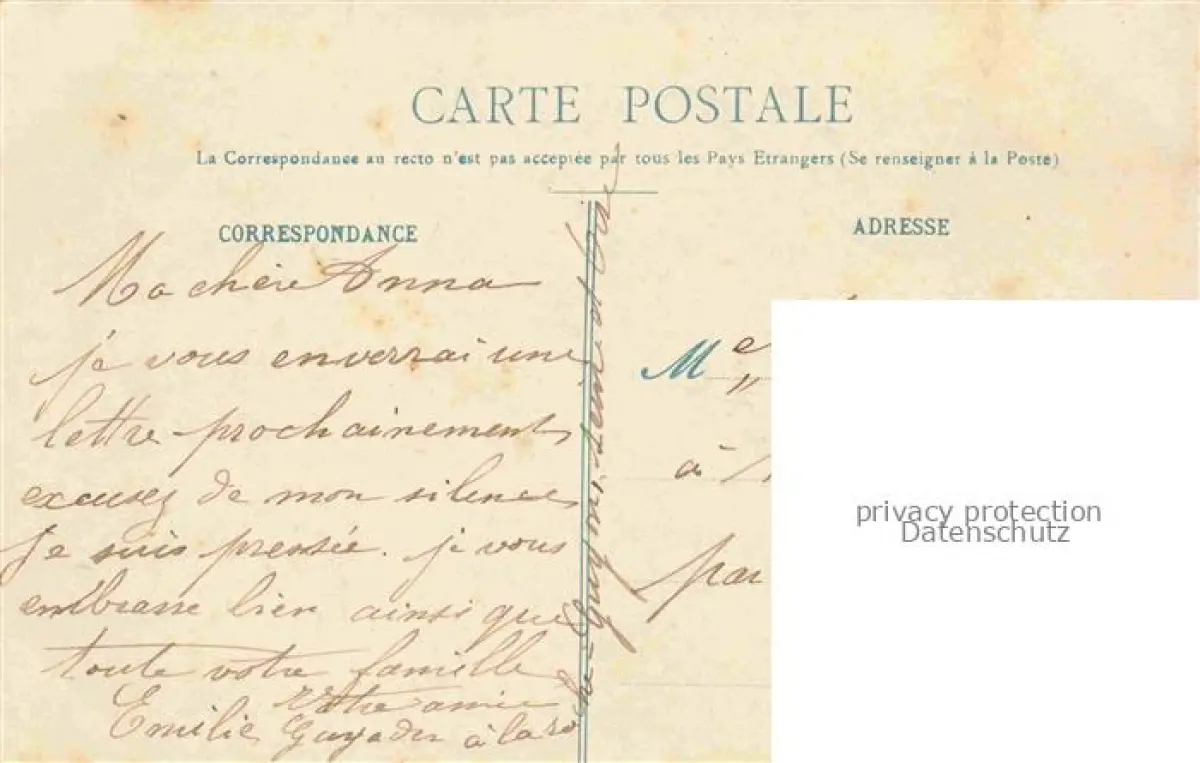 CARTE POSTALE
La Correspondance au recto n'est pas acceptée par tous les Pays Etrangers (Se renseigner à la Poste)
CORRESPONDANCE
Ma chère Anna
je vous enverrai une
lettre prochainement
excusez de mon silence
Je suis pressée. je vous
embrasse bien ainsi que
toute votre famille
Votre amie
Emilie Guyader à la
ADRESSE
M e
"
à
par
privacy protection
Datenschutz